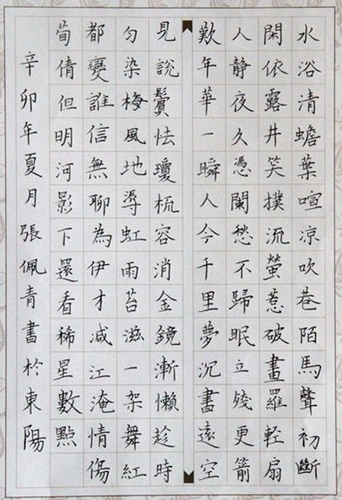 水浴清蟾葉喧凉吹巷陌馬聲初斷
閑依露井笑撲流螢惹破畫羅輕扇
人靜夜久憑闌愁不歸眠立殘更箭
歎年華一瞬人今千里夢沉書遠空
見說鬢怯瓊梳容消金鏡漸懶趁時
勻染梅風地溽虹雨苔滋一架舞紅
都變誰信無聊為伊才減江淹情傷
荀倩但明河影下還看稀星數點
辛卯年夏月張佩青書於東陽